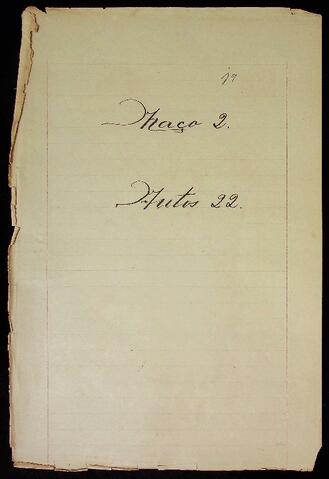 Maço 2.
Autos 22.